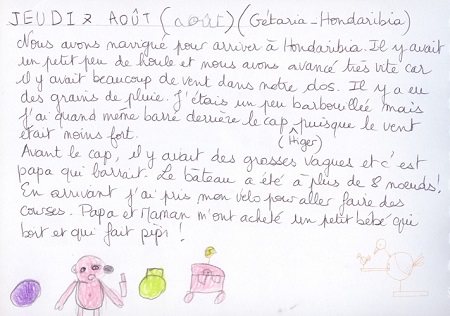 JEUDI 2 AOÛT (août) (Gétaria-Hondaribia)
Nous avons navigué pour arriver à Hondaribia. Il y avait
un petit peu de houle et nous avons avancé très vite car
il y avait beaucoup de vent dans notre dos. Il y a eu
des grains de pluie. J'étais un peu barbouillée mais
j'ai quand même barré derrière le cap puisque le vent
était moins fort. (Higer)
Avant le cap, il y avait des grosses vagues et c'est
papa qui barrait. Le bâteau a été à plus de 8 noeuds!
En arrivant j'ai pris mon velo pour aller faire des
courses. Papa et Maman m'ont acheté un petit bébé qui
boit et qui fait pipi!